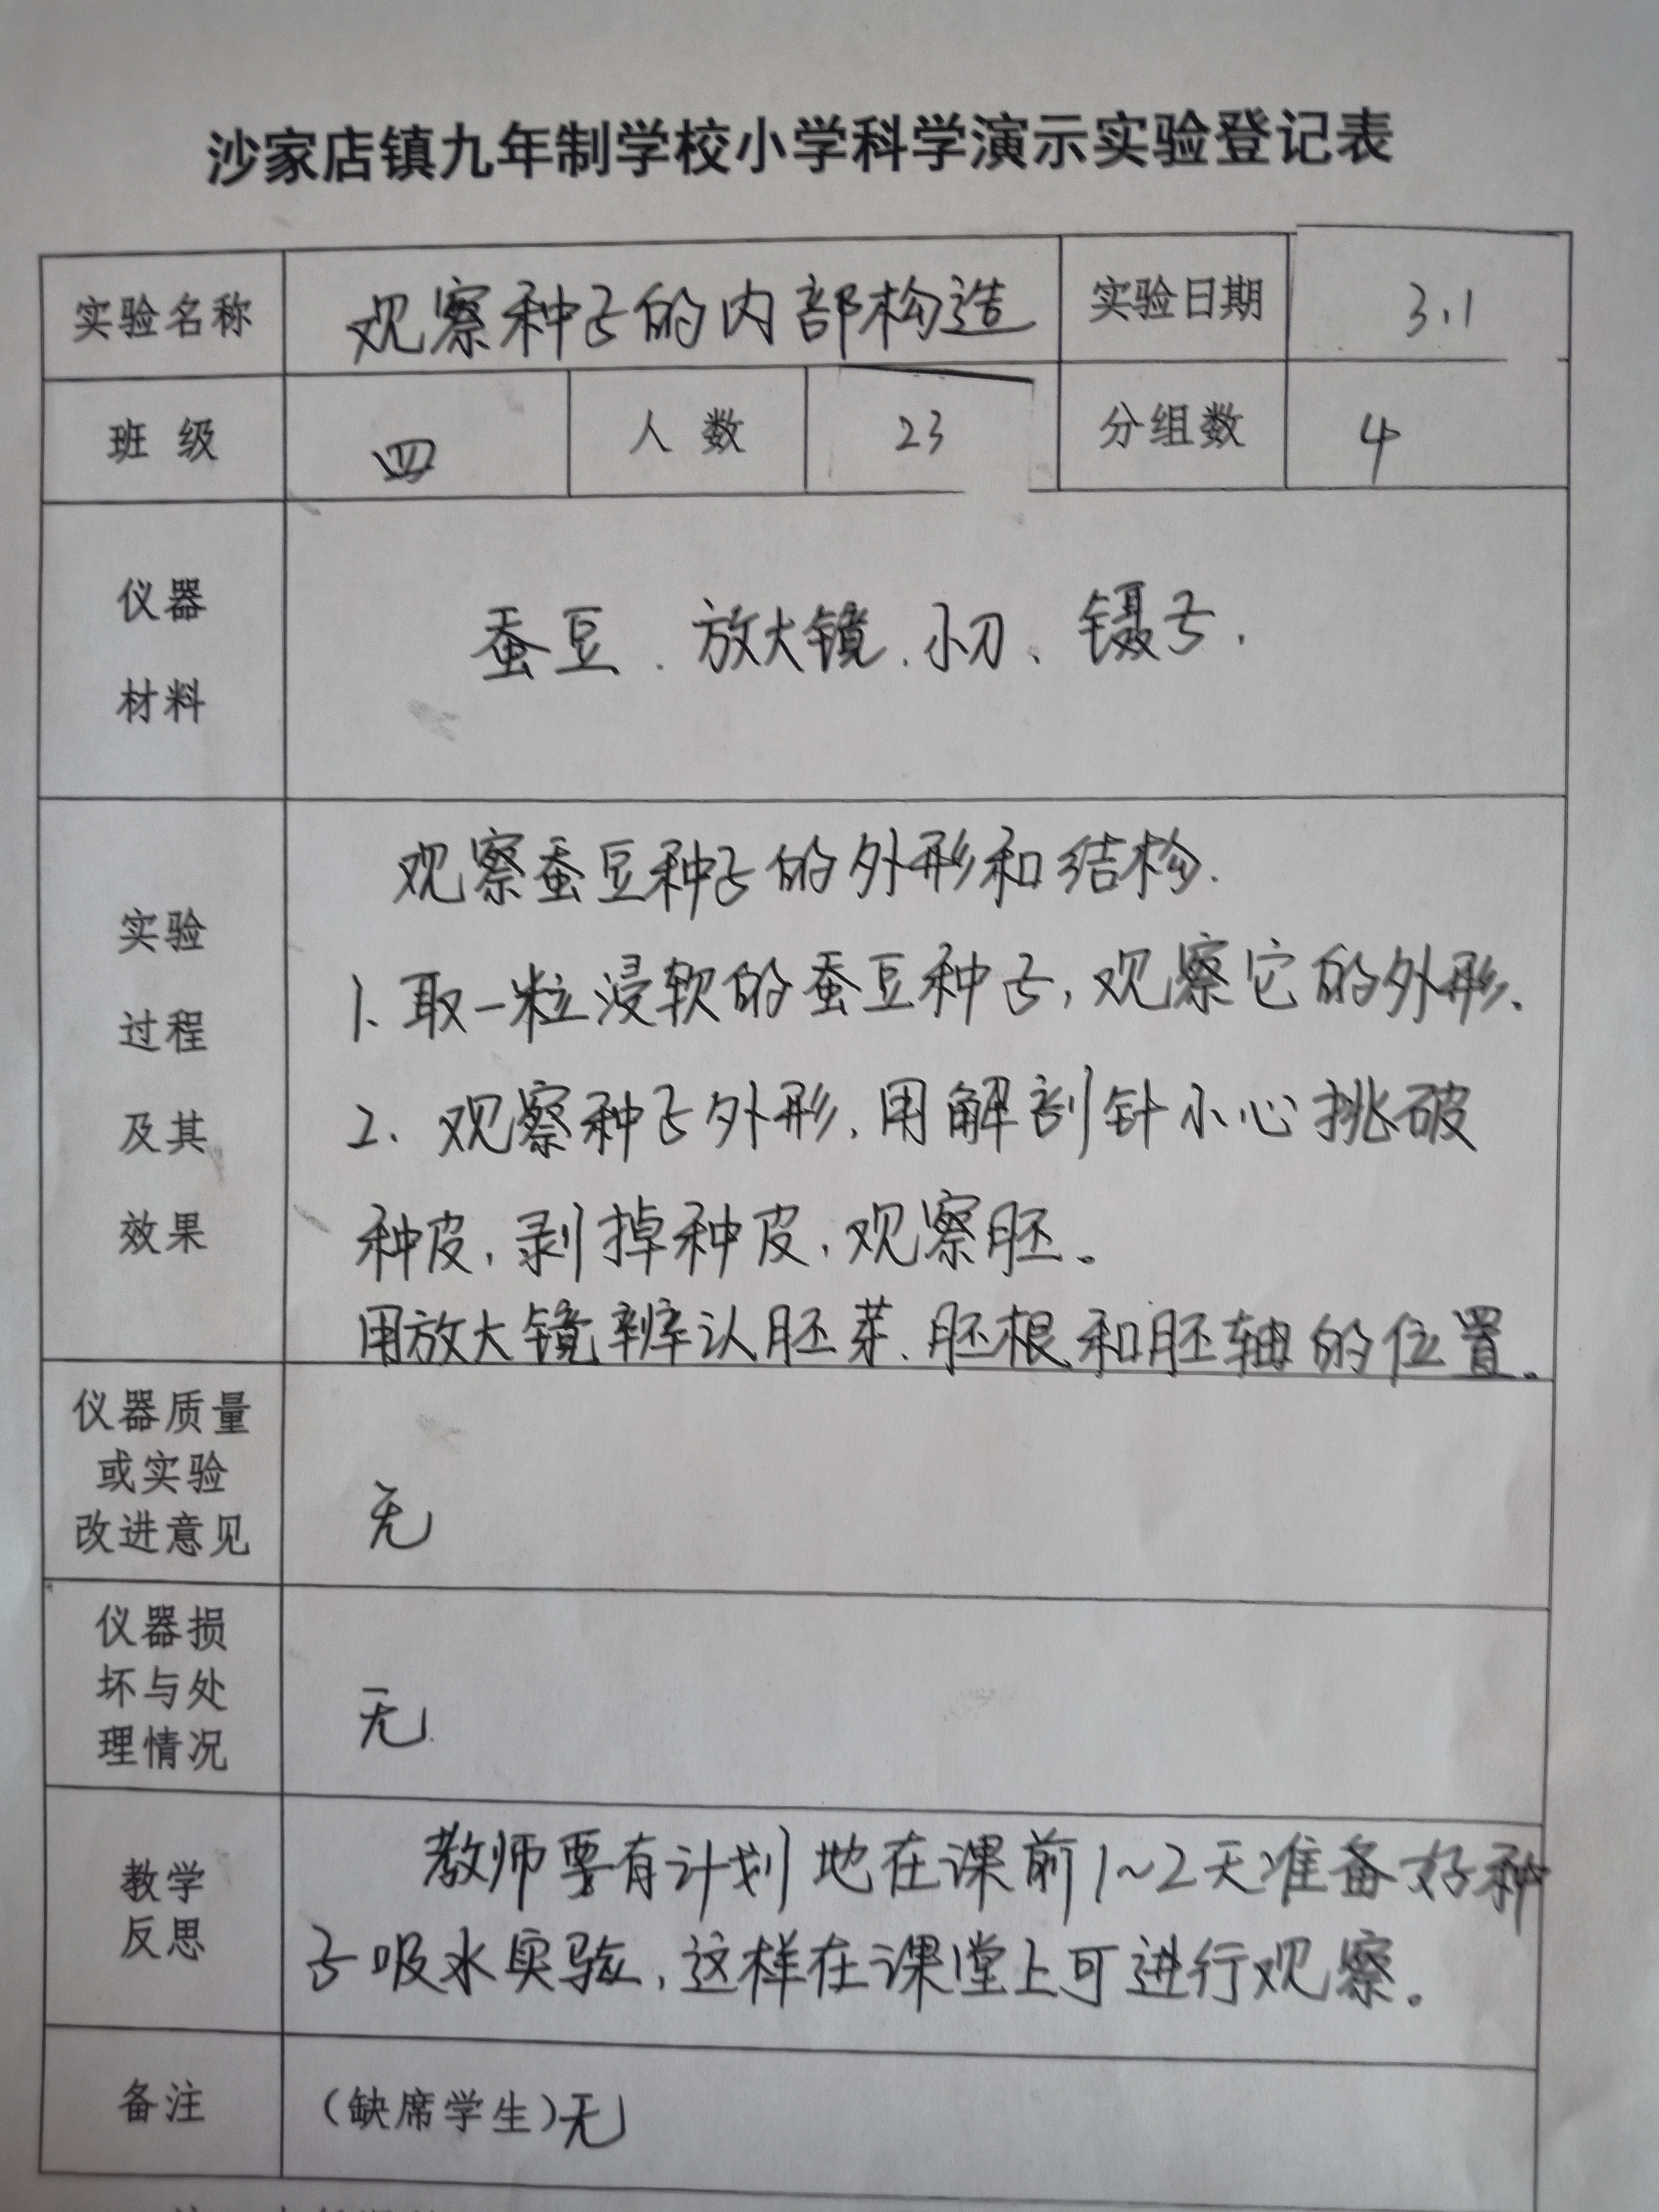 沙家店镇九年制学校小学科学演示实验登记表
实验名称 观察种子的内部构造 实验日期 3.1
班 级 四 人 数 23 分组数 4
仪器
材料
蚕豆、放大镜、小刀、镊子.
实验
过程
及其
效果
观察蚕豆种子的外形和结构.
1、取一粒浸软的蚕豆种子,观察它的外形、
2、观察种子外形,用解剖针小心挑破
种皮,剥掉种皮,观察胚。
用放大镜辨认胚芽、胚根和胚轴的位置。
仪器质量
或实验
改进意见
无
仪器损
坏与处
理情况
无
教学
反思
教师要有计划地在课前1~2天准备好种
子吸水实验,这样在课堂上可进行观察。
备注 (缺席学生)无